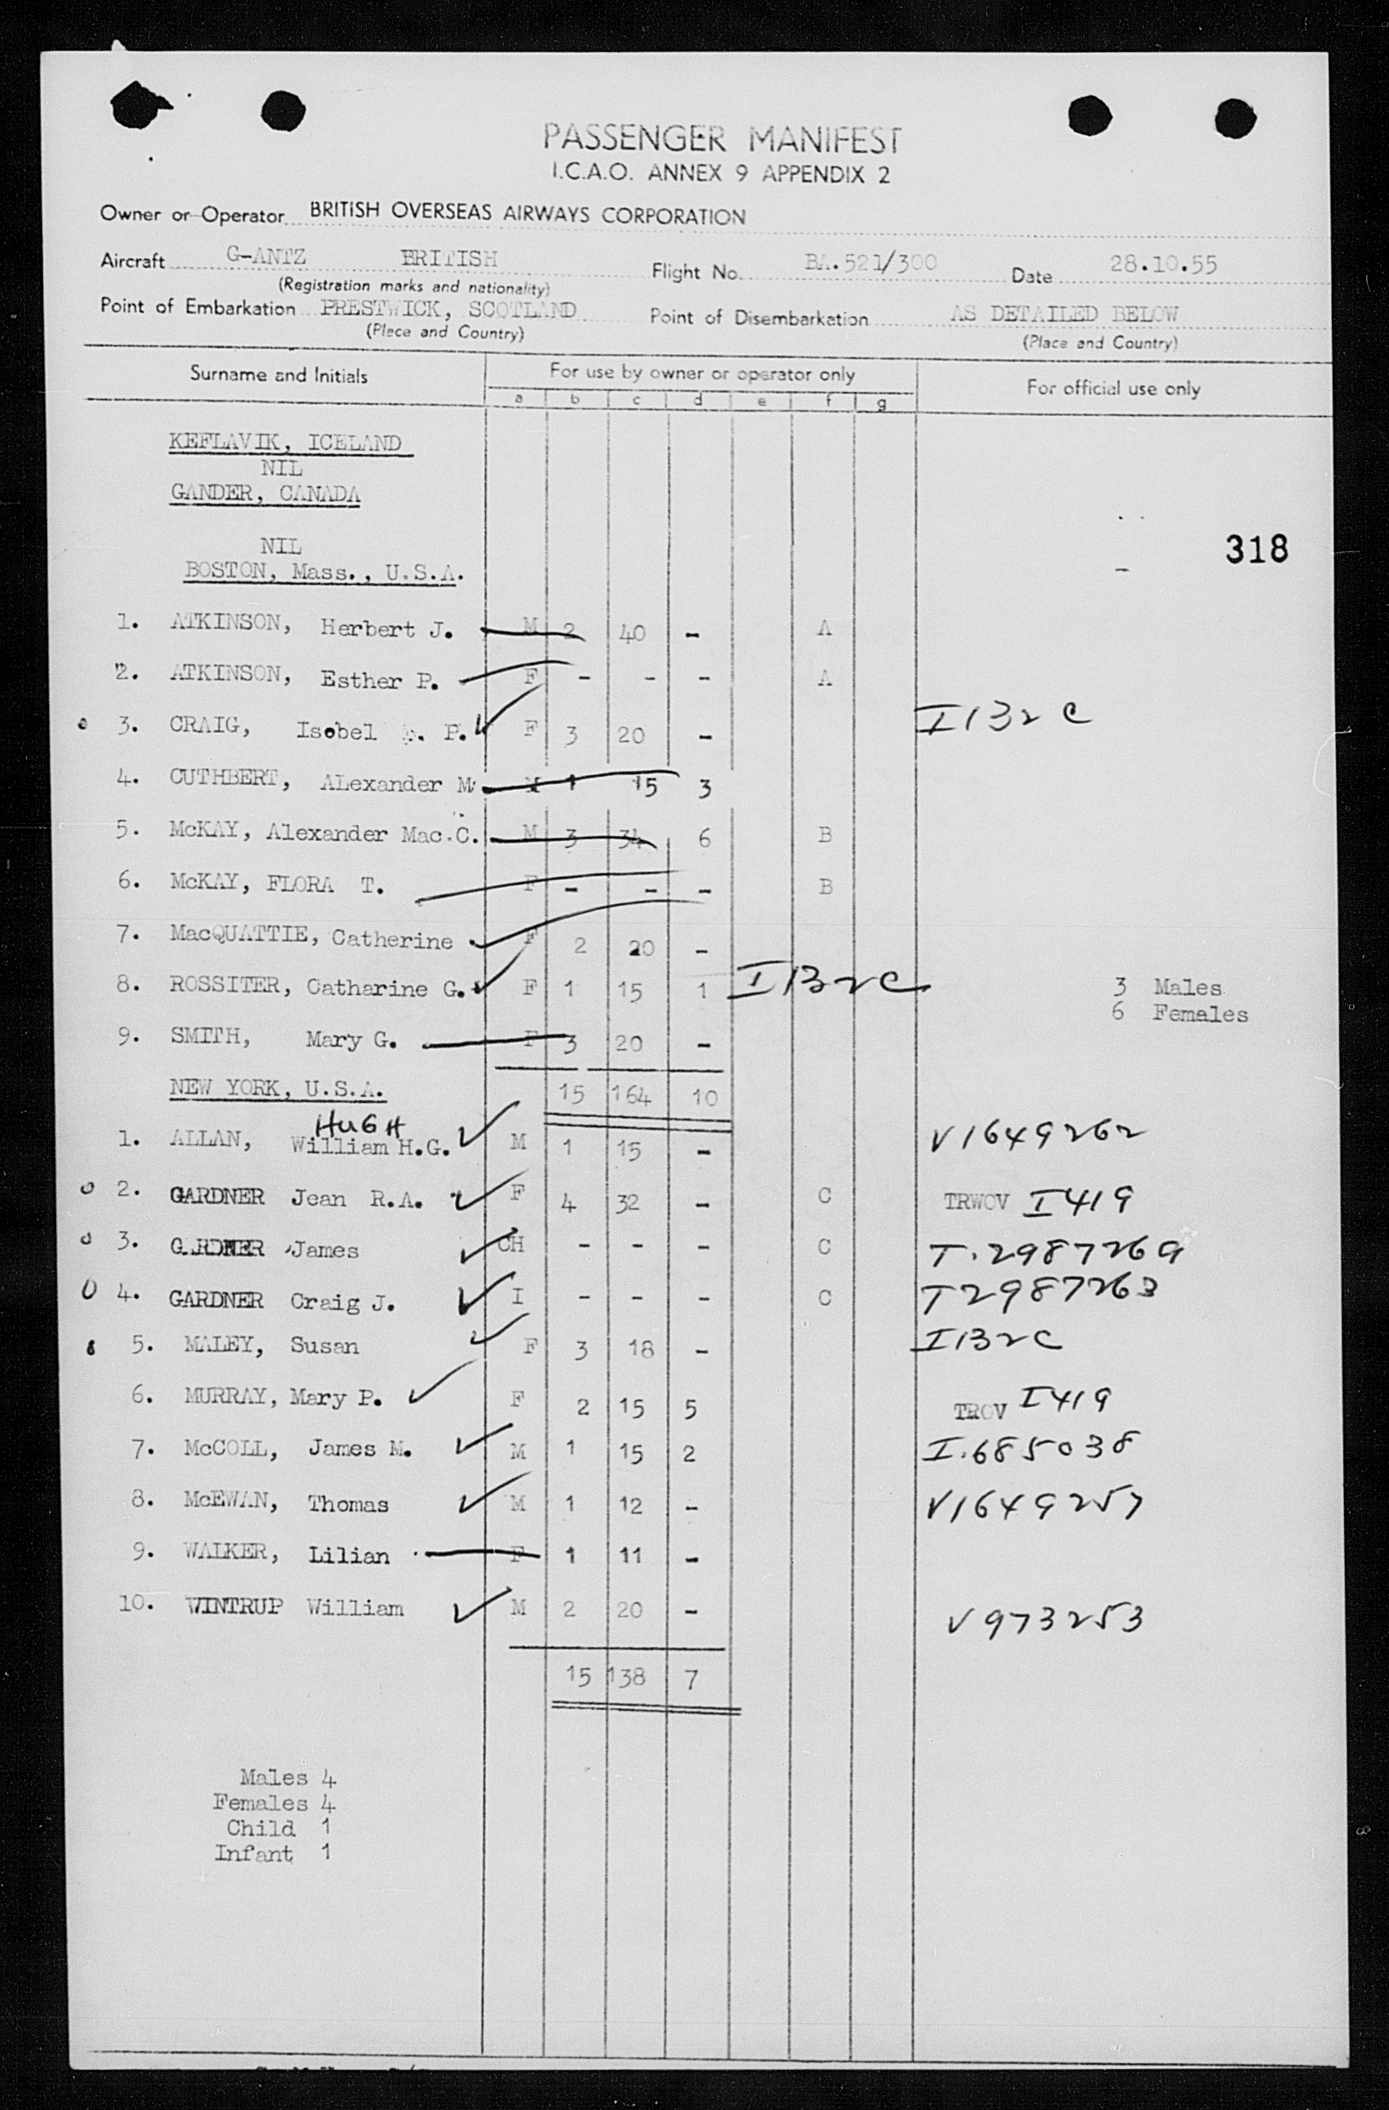 PASSENGER MANIFEST
I.C.A.O. ANNEX 9 APPENDIX 2
Owner or Operator BRITISH OVERSEAS AIRWAYS CORPORATION
Aircraft G-ANTZ BRITISH Flight No. BA.521/300 Date 28.10.55
(Registration marks and nationality)
Point of Embarkation PRESTWICK, SCOTLAND Point of Disembarkation AS DETAILED BELOW
(Place and Country) (Place and Country)
Surname and Initials For use by owner or operator only For official use only
a b c d e f g
KEFLAVIK, ICELAND
NIL
GANDER, CANADA
NIL
318
BOSTON, Mass., U.S.A.
1. ATKINSON, Herbert J. M 2 40 - A
2. ATKINSON, Esther P. F - - - A
3. CRAIG, Isobel P. F 3 20 - I132C
4. CUTHBERT, ALexander M. M 1 15 3
5. McKAY, Alexander Mac.C. M 3 34 6 B
6. McKAY, FLORA T. F - - - B
7. MacQUATTIE, Catherine F 2 20 -
8. ROSSITER, Catharine G. F 1 15 1 I132C 3 Males
6 Females
9. SMITH, Mary G. F 3 20 -
NEW YORK, U.S.A. 15 164 10
HUGH
1. ALLAN, William H.G. M 1 15 - V1649262
2. GARDNER Jean R.A. F 4 32 - C TRWOV I419
3. GARDNER James CH - - - C T.2987269
4. GARDNER Craig J. I - - - C T2987263
5. MALEY, Susan F 3 18 - I132C
6. MURRAY, Mary P. F 2 15 5 TROV I419
7. McCOLL, James M. M 1 15 2 I.685038
8. McEWAN, Thomas M 1 12 - V1649257
9. WALKER, Lilian F 1 11 -
10. WINTRUP William M 2 20 - V973253
15 138 7
Males 4
Females 4
Child 1
Infant 1